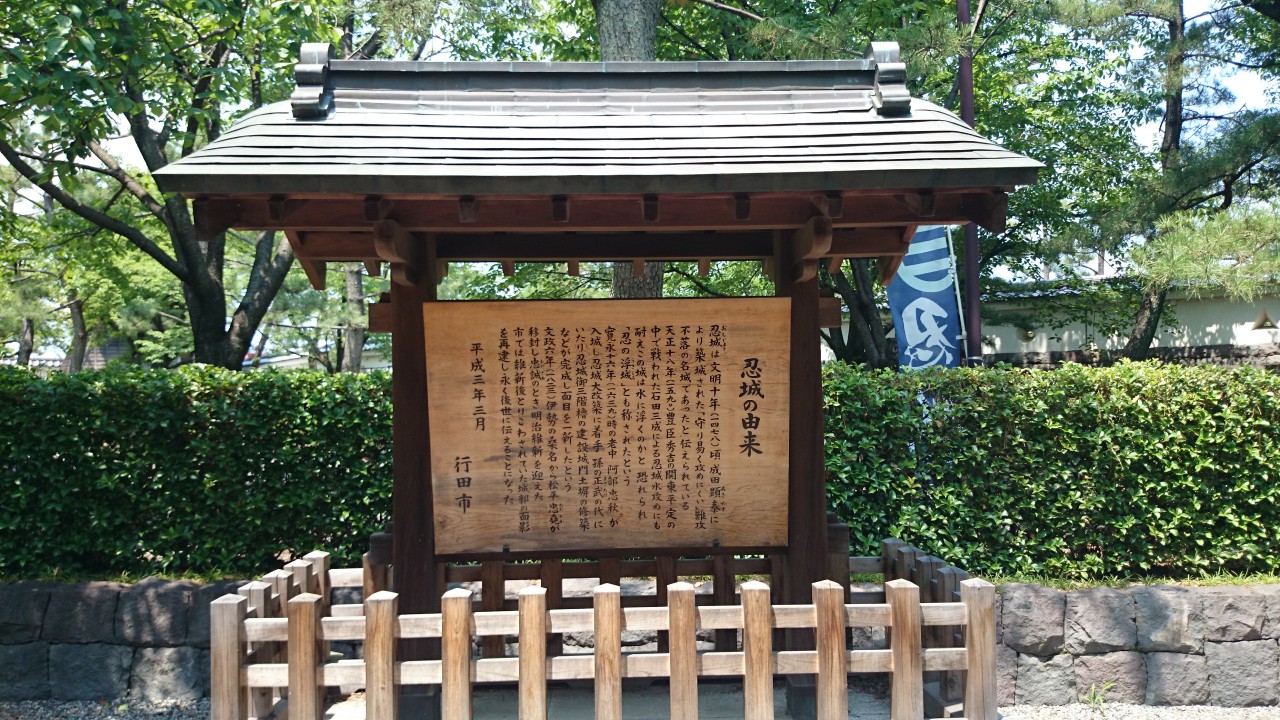 忍城の由来
忍城は文明十年(一四七八)頃、成田顕泰に
より築城された「守り易く攻めにくい」難攻
不落の名城であったと伝えられている
天正十八年(一五九〇)豊臣秀吉の関東平定の
中で戦われた石田三成による忍城水攻めにも
耐えこの城は水に浮くのかと恐れられ
「忍の浮城」とも称されたという
寛永十六年(一六三九)時の老中阿部忠秋が
入城し忍城大改築に着手孫の正武の代に
いたり忍城御三階櫓の建設城門土塀の修築
などが完成し面目を一新したという
文政六年(一八二三)伊勢の桑名から松平忠堯が
移封し忠誠のとき明治維新を迎えた
市では維新後とりこわされていた城郭の面影
を再建し永く後世に伝えることになった
平成三年三月
行田市
忍